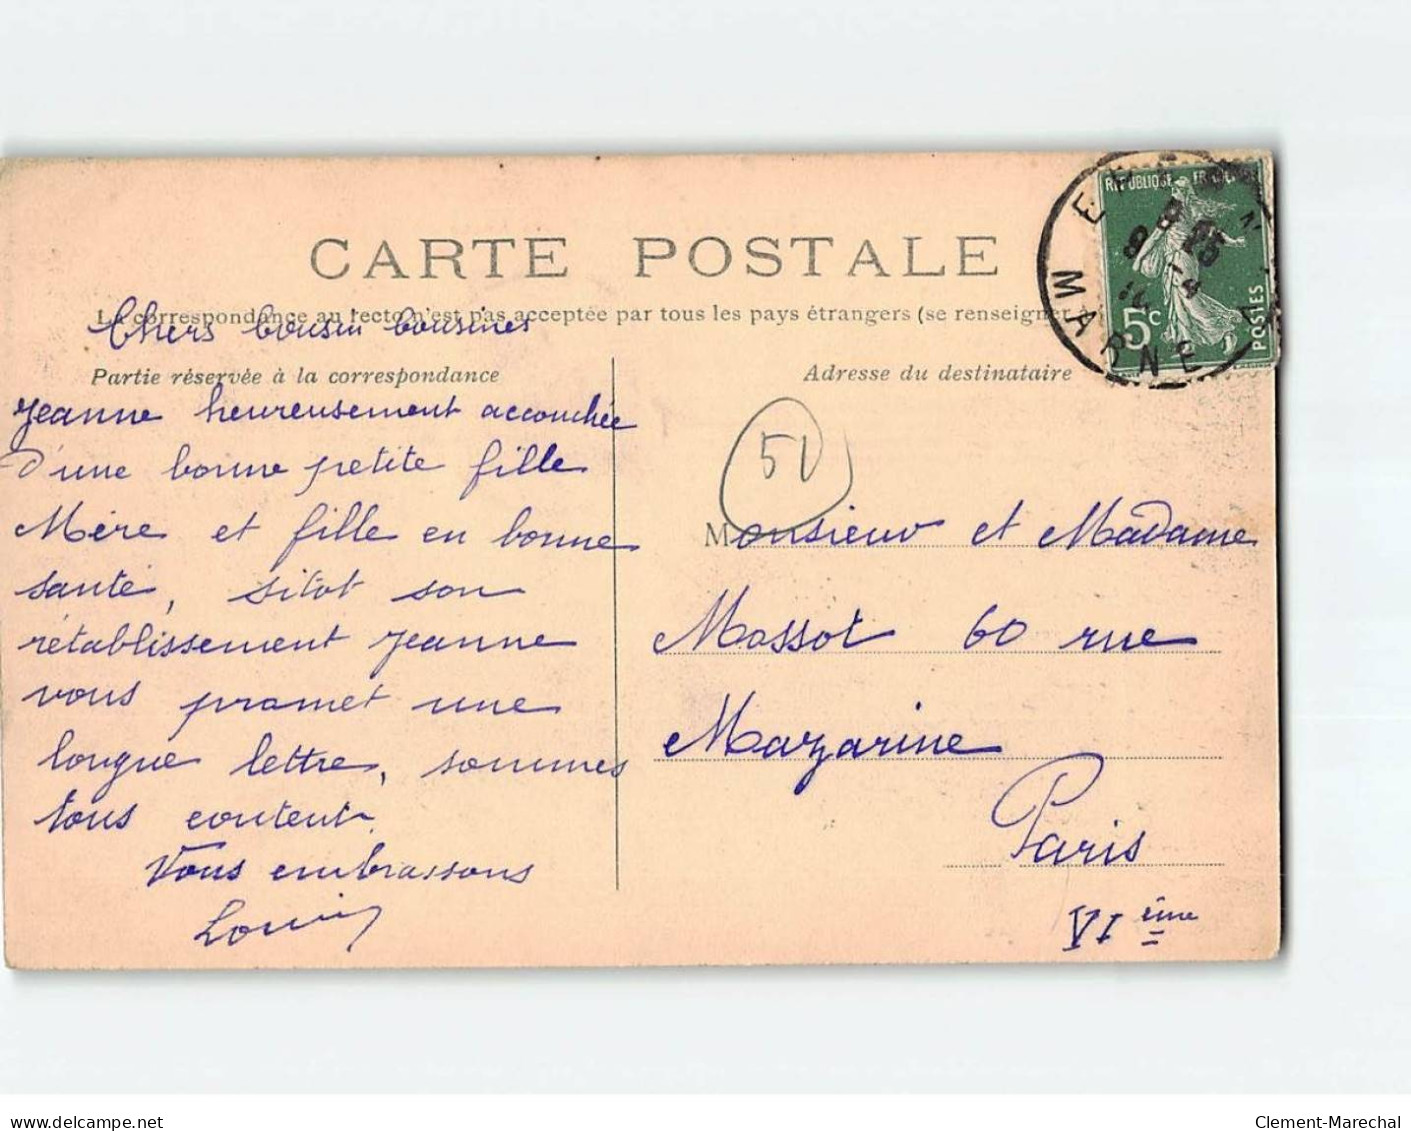 CARTE POSTALE
La correspondance au recto n'est pas acceptée par tous les pays étrangers (se renseigner
Chers Cousin Cousines
Partie réservée à la correspondance
Jeanne heureusement accouchée
d'une bonne petite fille
Mère et fille en bonne
santé, sitot son
rétablissement Jeanne
vous promet une
longue lettre, sommes
tous content.
Vous embrassons
Louis
Adresse du destinataire
51
Monsieur et Madame
Massot 60 rue
Mazarine
Paris
VI ème
REPUBLIQUE FRANÇAISE
5c
POSTES
8 25
9 -4
MARNE
Clement-Marechal
www.delcampe.net